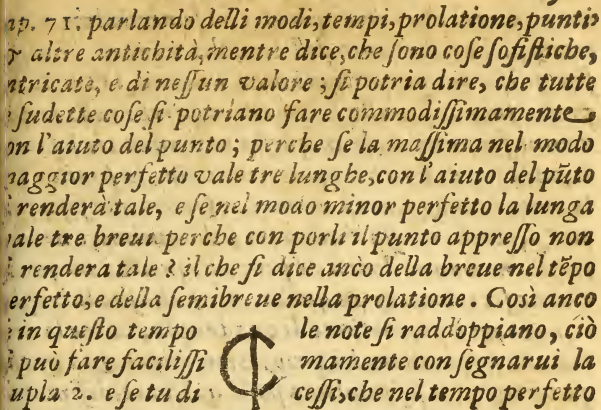 ap. 71. parlando delli modi, tempi, prolatione, punti
altre antichità, mentre dice, che ſono coſe ſofiſtiche,
ntricate, e di neſſun valore; ſi potria dire, che tutte
ſudette coſe ſi potriano fare commodiſſimamente
on l'aiuto del punto; perche ſe la maſſima nel modo
maggior perfetto vale tre lunghe, con l'aiuto del pūto
ſi renderà tale, e ſe nel modo minor perfetto la lunga
vale tre breui perche con porli il punto appreſſo non
ſi rendera tale? il che ſi dice anco della breue nel tēpo
erfetto, e della ſemibreue nella prolatione. Così anco
in queſto tempo le note ſi raddoppiano, ciò
ſi può fare faciliſſi mamente con ſegnarui la
upla 2. e ſe tu di ceſſi, che nel tempo perfetto